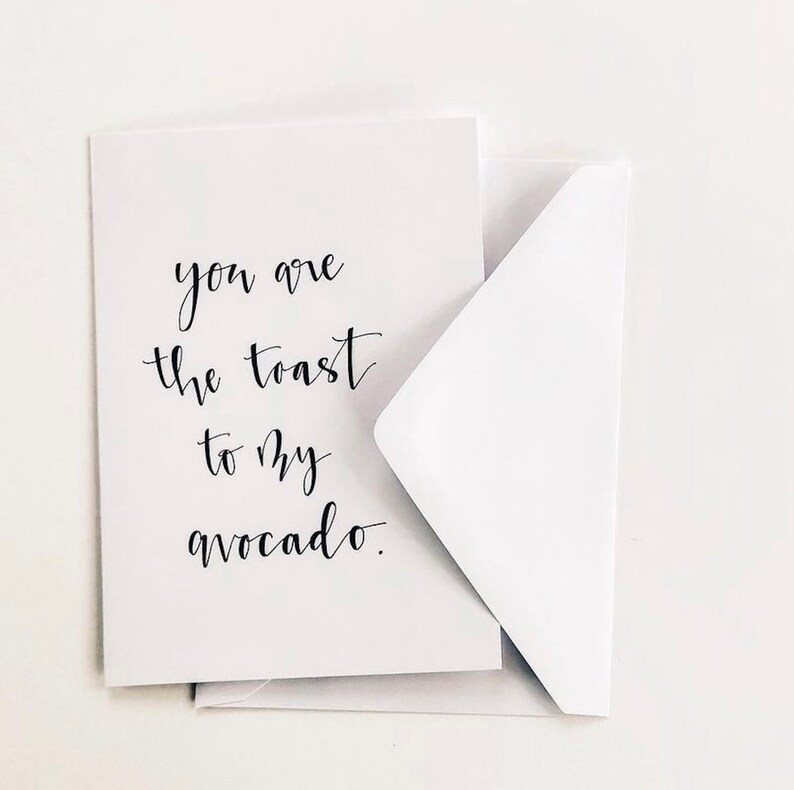 you are
the toast
to my
avocado.